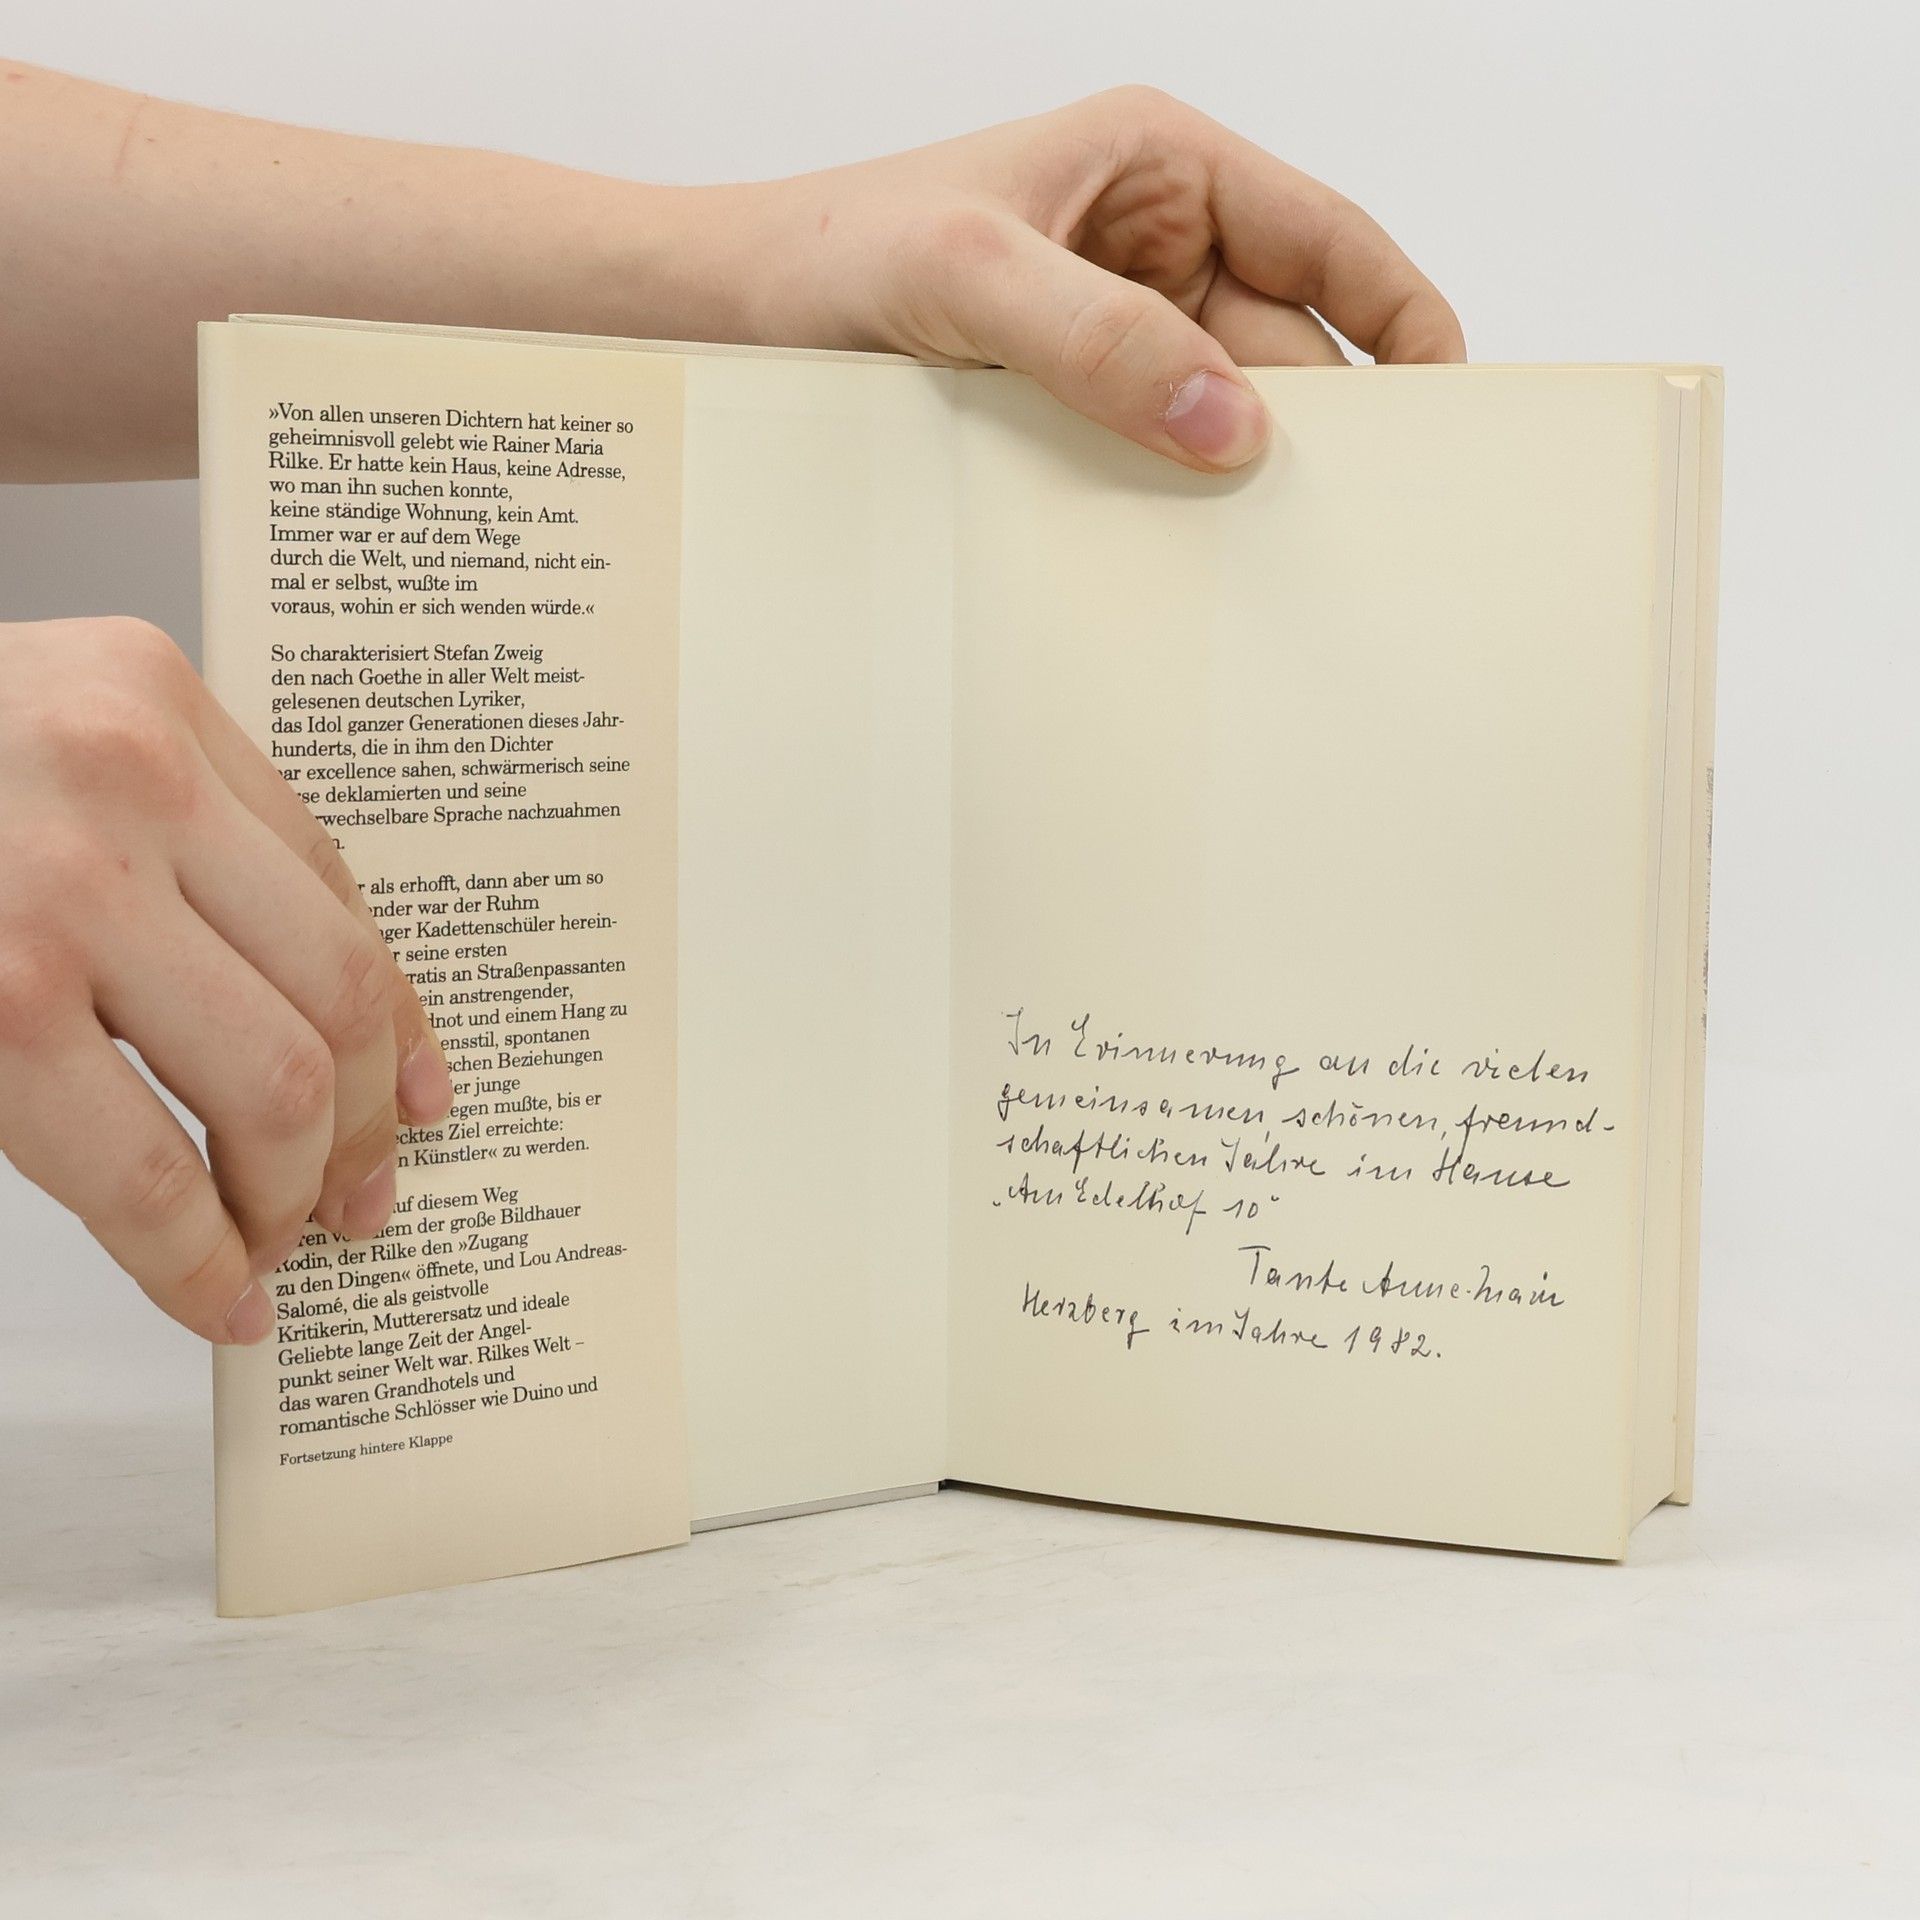 »Von allen unseren Dichtern hat keiner so
geheimnisvoll gelebt wie Rainer Maria
Rilke. Er hatte kein Haus, keine Adresse,
wo man ihn suchen konnte,
keine ständige Wohnung, kein Amt.
Immer war er auf dem Wege
durch die Welt, und niemand, nicht ein-
mal er selbst, wußte im
voraus, wohin er sich wenden würde.«
So charakterisiert Stefan Zweig
den nach Goethe in aller Welt meist-
gelesenen deutschen Lyriker,
das Idol ganzer Generationen dieses Jahr-
hunderts, die in ihm den Dichter
excellence sahen, schwärmerisch seine
deklamierten und seine
Sprache nachzuahmen
als erhofft, dann aber um so
war der Ruhm
Kadettenschüler herein-
seine ersten
an Straßenpassanten
ein anstrengender,
und einem Hang zu
spontanen
Beziehungen
junge
mußte, bis er
Ziel erreichte:
Künstler« zu werden.
auf diesem Weg
der große Bildhauer
Rodin, der Rilke den »Zugang
zu den Dingen« öffnete, und Lou Andreas-
Salomé, die als geistvolle
Kritikerin, Mutterersatz und ideale
Geliebte lange Zeit der Angel-
punkt seiner Welt war. Rilkes Welt –
das waren Grandhotels und
romantische Schlösser wie Duino und
Fortsetzung hintere Klappe
In Erinnerung an die vielen
gemeinsamen, schönen, freund-
schaftlichen Jahre im Hause
„Am Edelhof 10"
Tante Anne-Marie
Herzberg im Jahre 1982.